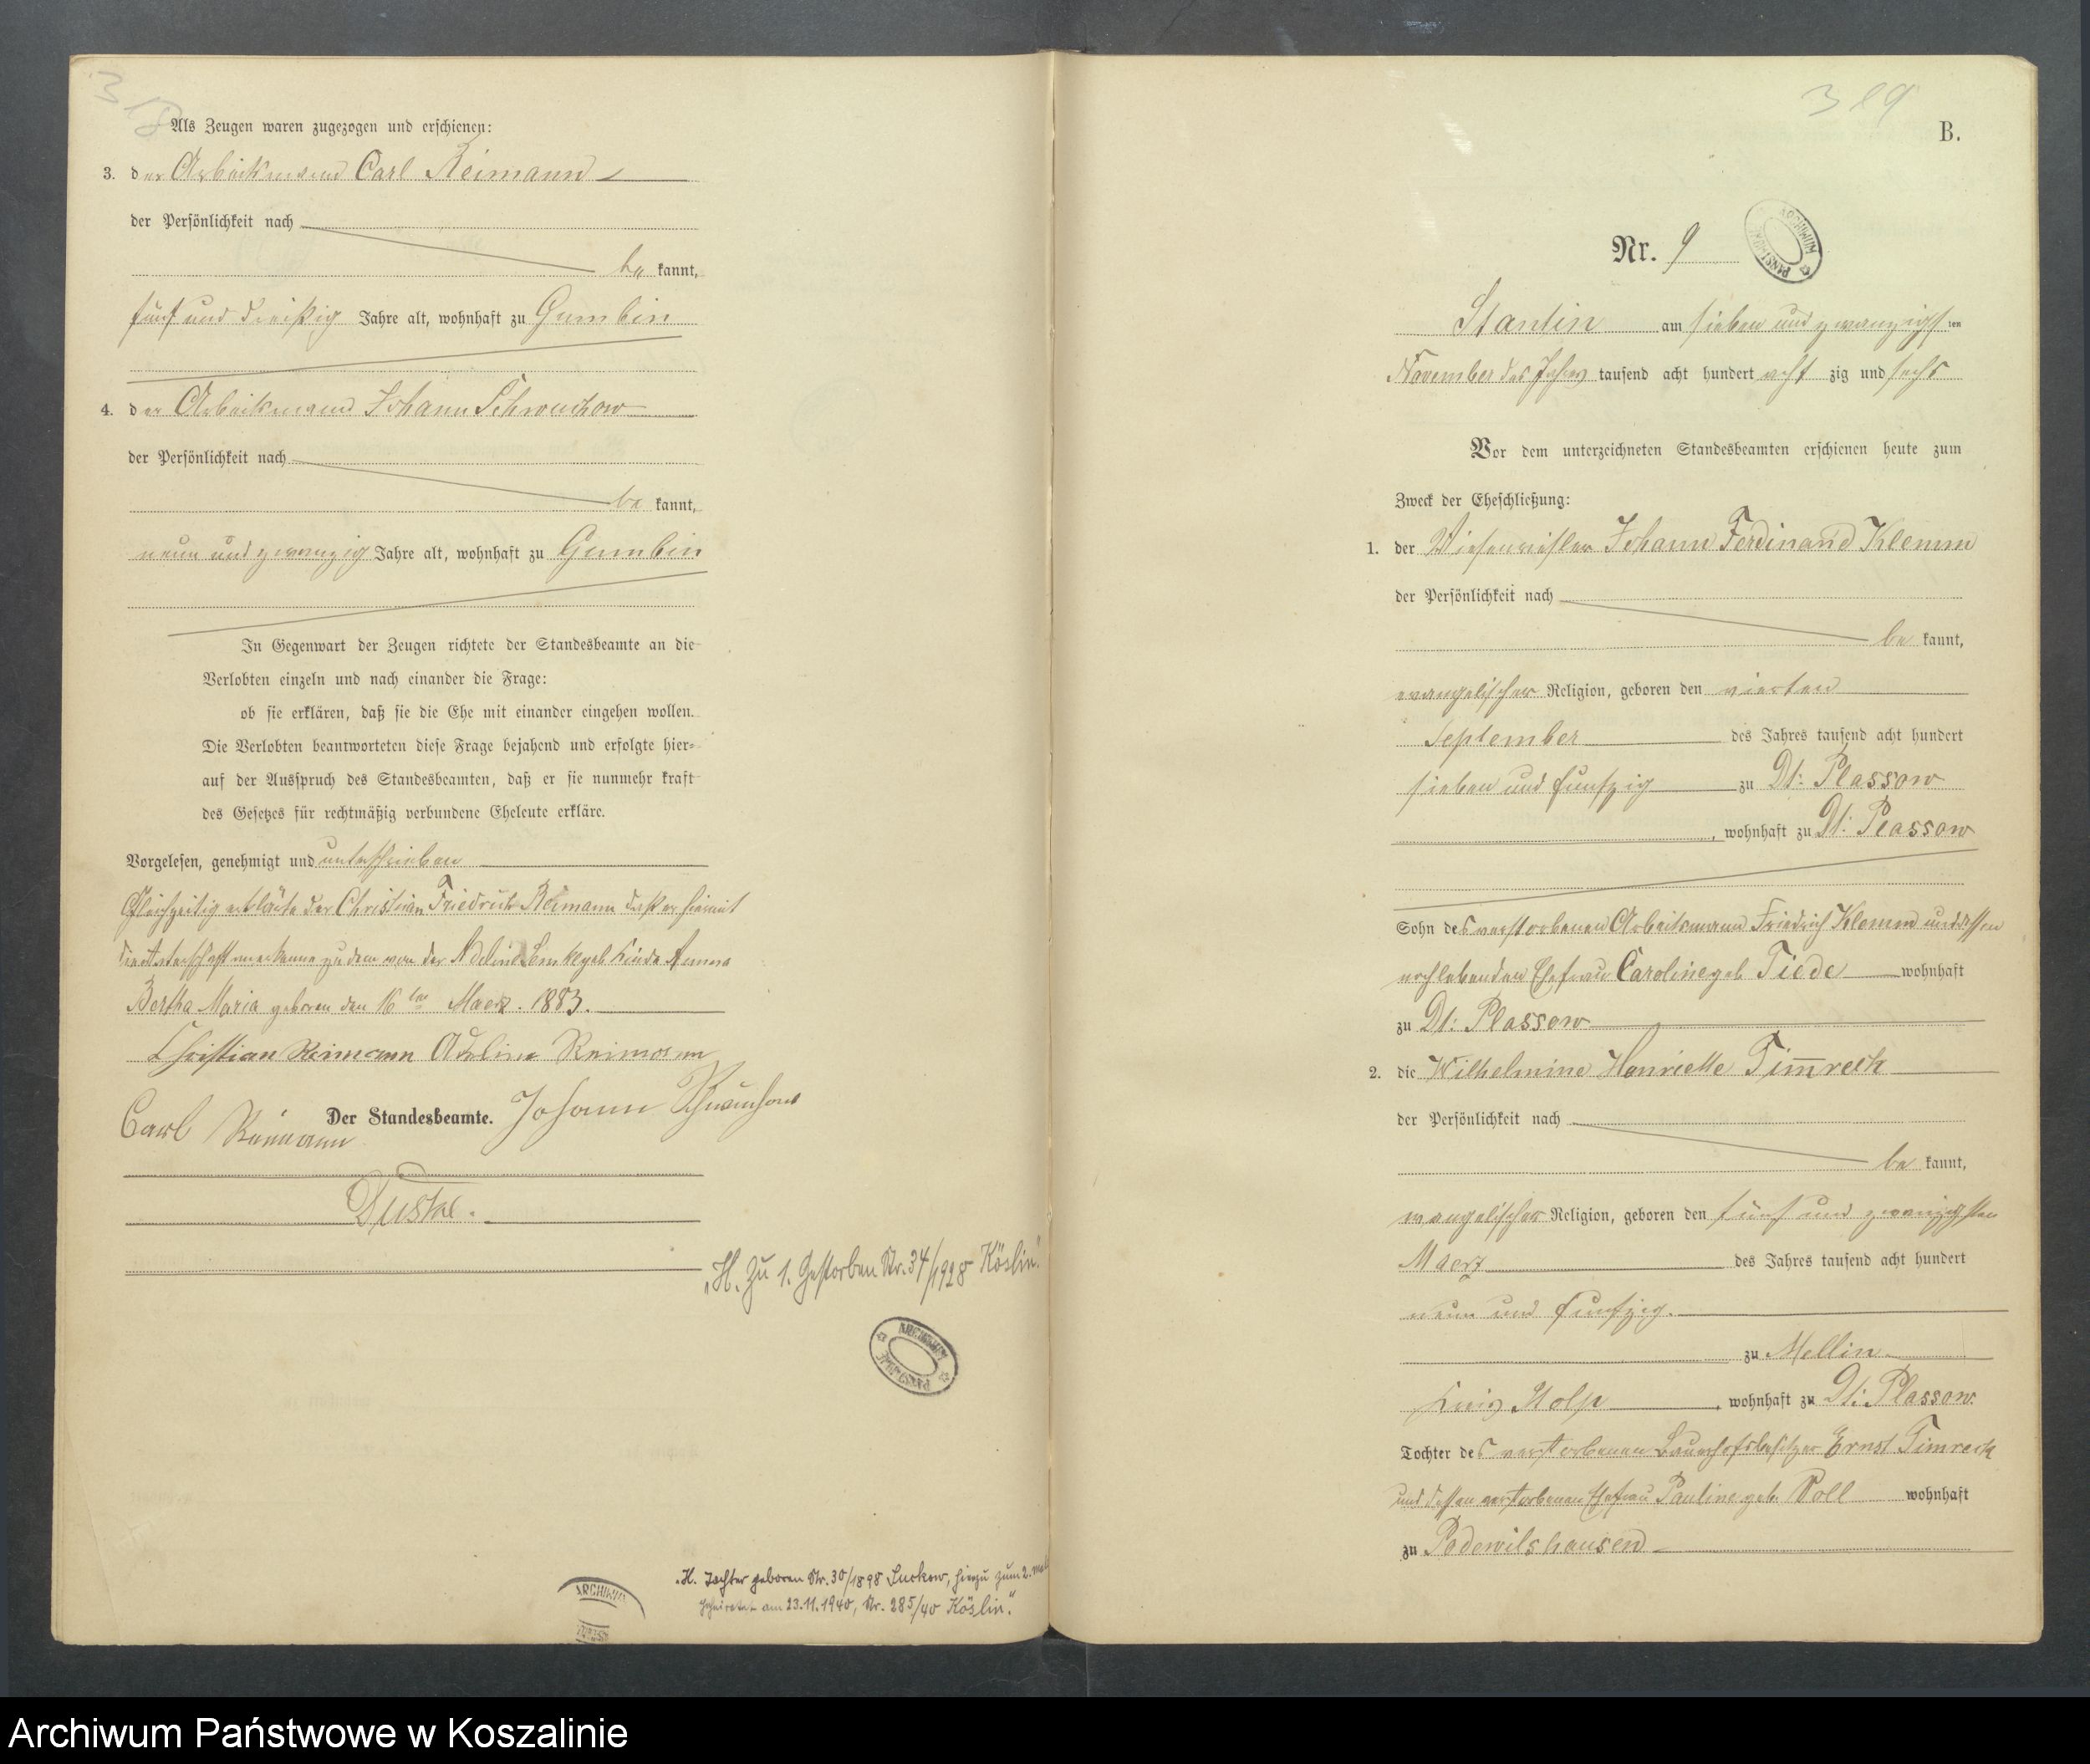 318
Als Zeugen waren zugezogen und erschienen:
3. der Arbeitsmann Carl Reimann
der Persönlichkeit nach
be kannt,
fünf und dreißig Jahre alt, wohnhaft zu Gumbin
4. der Arbeitsmann Johann Schwuchow
der Persönlichkeit nach
be kannt,
neun und zwanzig Jahre alt, wohnhaft zu Gumbin
In Gegenwart der Zeugen richtete der Standesbeamte an die
Verlobten einzeln und nach einander die Frage:
ob sie erklären, daß sie die Ehe mit einander eingehen wollen.
Die Verlobten beantworteten diese Frage bejahend und erfolgte hier-
auf der Ausspruch des Standesbeamten, daß er sie nunmehr kraft
des Gesetzes für rechtmäßig verbundene Eheleute erkläre.
Vorgelesen, genehmigt und unterschrieben
Gleichzeitig erklärte der Christian Friedrich Reimann daß er hiermit
die Vaterschaft anerkenne zu dem von der Adeline Lemke geb. Kinde Anna
Bertha Maria geboren den 16ten Maerz. 1883.
Christian Reimann Adeline Reimann
Carl Reimann Johann Schwuchow
Der Standesbeamte.
Duske.
„H. Zu 1. Gestorben Nr. 34/1928 Köslin."
ARCHIWUM PAŃSTWOWE
„H. Tochter geboren Nr. 30/1898 Luckow, hierzu zum 2. mal
geheiratet am 23.11.1940, Nr. 285/40 Köslin."
ARCHIWUM
389
B.
Nr. 9
ARCHIWUM PAŃSTWOWE
Stantin am sieben und zwanzigsten
November des Jahres tausend acht hundert acht zig und sechs
Vor dem unterzeichneten Standesbeamten erschienen heute zum
Zweck der Eheschließung:
1. der Johann Ferdinand Klemm
der Persönlichkeit nach
be kannt,
evangelischer Religion, geboren den vierten
September des Jahres tausend acht hundert
sieben und funfzig zu Dt: Plassow
, wohnhaft zu Dt: Plassow
Sohn des verstorbenen Arbeitsmann Friedrich Klemm und dessen
noch lebenden Ehefrau Caroline geb. Tiede wohnhaft
zu Dt: Plassow
2. die Wilhelmine Henriette Tim̅reck
der Persönlichkeit nach
be kannt,
evangelischer Religion, geboren den fünf und zwanzigsten
Maerz des Jahres tausend acht hundert
neun und funfzig.
zu Mellin
Kreis Stolp, wohnhaft zu Dt: Plassow.
Tochter des verstorbenen Bauerhofsbesitzer Ernst Timreck
und dessen verstorbenen Ehefrau Pauline geb. Voll wohnhaft
zu Podewilshausen
Archiwum Państwowe w Koszalinie